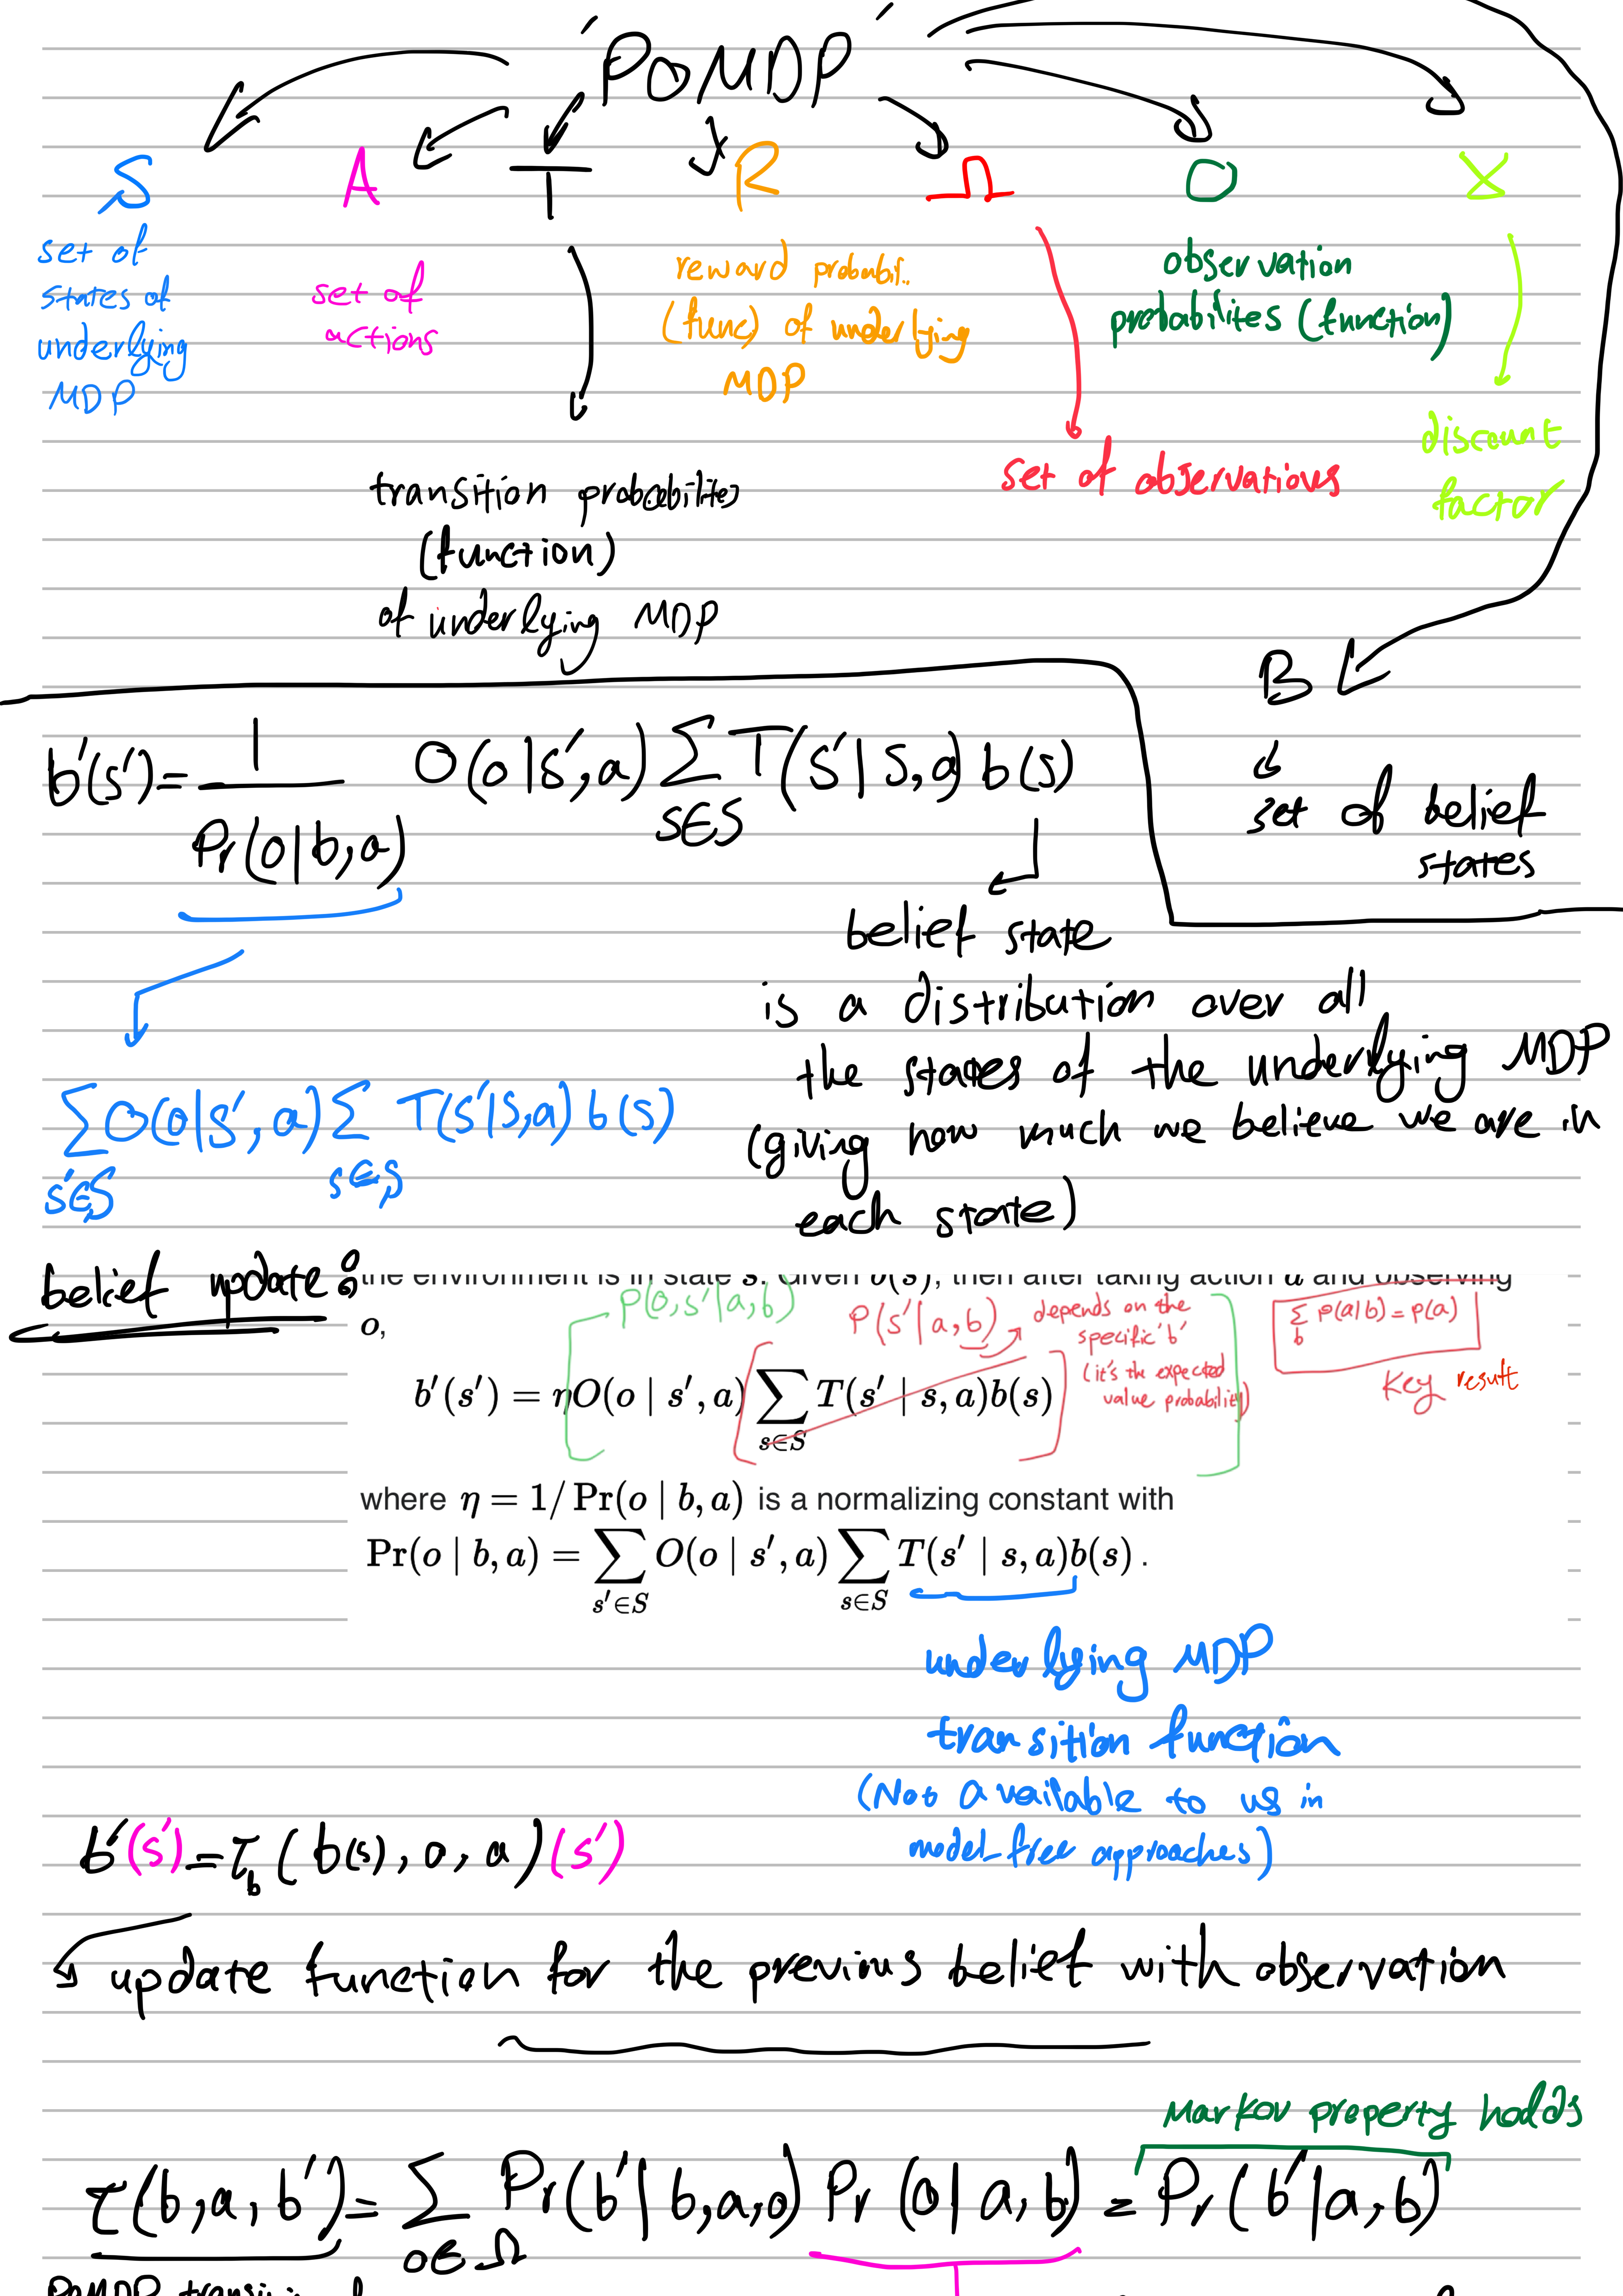 'POMDP'
S A T R Ω O γ
set of
states of
underlying
MDP
set of
actions
transition probabilites
(function)
of underlying MDP
reward probabil..
(func) of underlying
MDP
set of observations
observation
probabilites (function)
discount
factor
B
set of belief
states
b'(s') = 1 / Pr(o|b,a) O(o|s',a) Σ s∈S T(s'|s,a) b(s)
belief state
is a distribution over all
the states of the underlying MDP
(giving how much we believe we are in
each state)
Σ s'∈S O(o|s',a) Σ s∈S T(s'|s,a) b(s)
belief update:
the environment is in state s. Given b(s), then after taking action a and observing
o,
P(o,s'|a,b)
P(s'|a,b)
depends on the
specific 'b'
(it's the expected
value probability)
Σ b P(a|b) = P(a)
Key result
b'(s') = ηO(o | s', a) Σ s∈S T(s' | s, a)b(s)
where η = 1/ Pr(o | b, a) is a normalizing constant with
Pr(o | b, a) = Σ s'∈S O(o | s', a) Σ s∈S T(s' | s, a)b(s) .
underlying MDP
transition function
(Not available to us in
model-free approaches)
b'(s') = τb (b(s), o, a)(s')
update function for the previous belief with observation
Markov property holds
τ(b,a,b') = Σ o∈Ω Pr(b'|b,a,o) Pr(o|a,b) = Pr(b'|a,b)